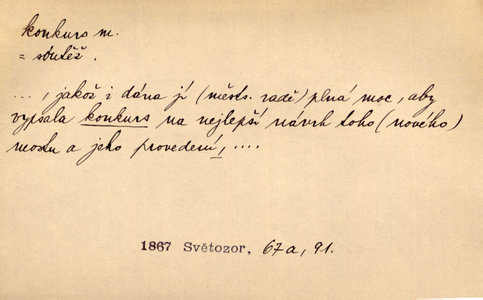 konkurs m.
= soutěž.
..., jakož i dána jí (městs. radě) plná moc, aby
vypsala konkurs na nejlepší návrh toho (nového)
mostu a jeho provedení, ....
1867 Světozor, 67a, 91.